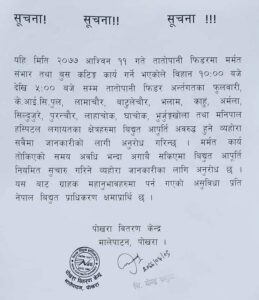 सूचना!   सूचना!!   सूचना !!!
यहि मिति २०७७ आश्विन ११ गते तातोपानी फिडरमा मर्मत
संभार तथा वुस कटिङ्ग कार्य गर्न भएकोले विहान १०:०० बजे
देखि ५:०० बजे सम्म तातोपानी फिडर अर्न्तगतका फुलवारी,
के.आई.सि.पुल, लामाचौर, बाटुलेचौर, भलाम, काहु, अर्मला,
सिल्दुजुरे, पुरन्चौर, लाहाचोक, घाचोक, भुर्जुङ्गखोला तथा मनिपाल
हस्पिटल लगायतका क्षेत्रहरुमा विद्युत आपूर्ति अवरुद्ध हुने व्यहोरा
सवैमा जानकारीको लागी अनुरोध गरिन्छ । मर्मत कार्य
तोकिएको समय अवधि भन्दा अगावै सकिएमा विद्युत आपूर्ति
नियमित सुचारु गरिने व्यहोरा जानकारीका लागि अनुरोध छ ।
यस बाट ग्राहक महानुभावहरुमा पर्न गएको असुविधा प्रति
नेपाल विद्युत प्राधिकरण क्षमाप्रार्थि छ ।
पोखरा वितरण केन्द्र
मालेपाटन, पोखरा ।